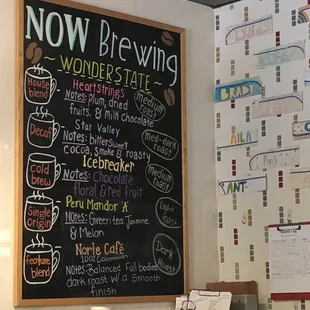 NOW Brewing
~ WONDERSTATE ~
House blend
Heartstrings
Notes: Plum, dried
fruits, & milk chocolate
medium roast
Decaf
Star Valley
Notes: bittersweet
cocoa, smoke & roasty
med-dark roast
cold brew
Icebreaker
Notes: Chocolate,
floral & red fruit
medium roast
Single Origin
Peru Mandor 'A
Notes: Green tea Jasmine
& Melon
Light roast
feature blend
Norte Café
100% Colombian
Notes: Balanced Full-bodied
dark roast w/ a Smooth
finish
Dark Roast
BRADY